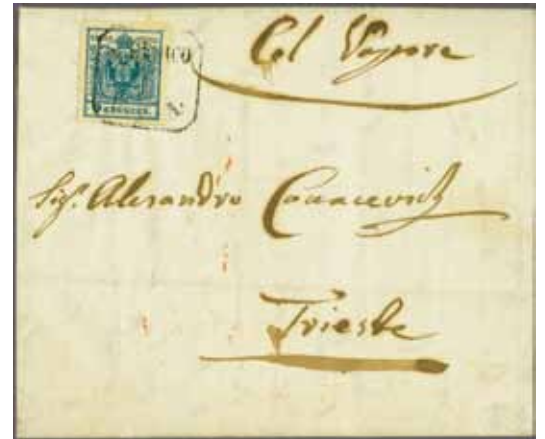 Col Vapore
KREUZER
Sigr. Alesandro Covacevich
Trieste